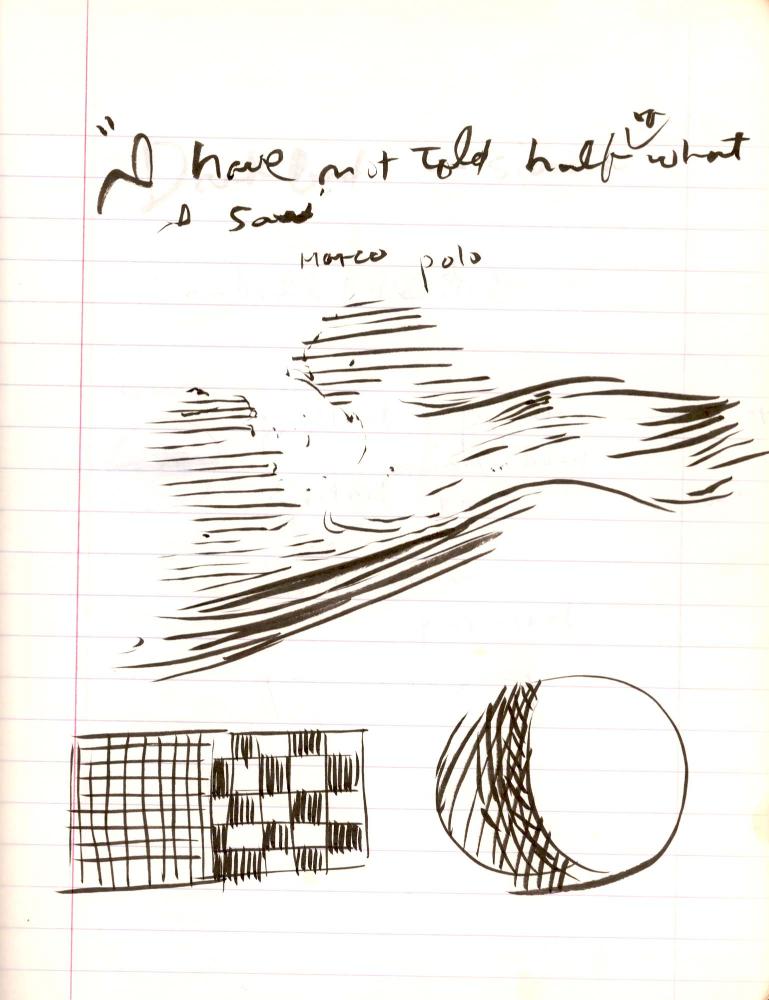 "I have not told half of what
I saw
Marco polo